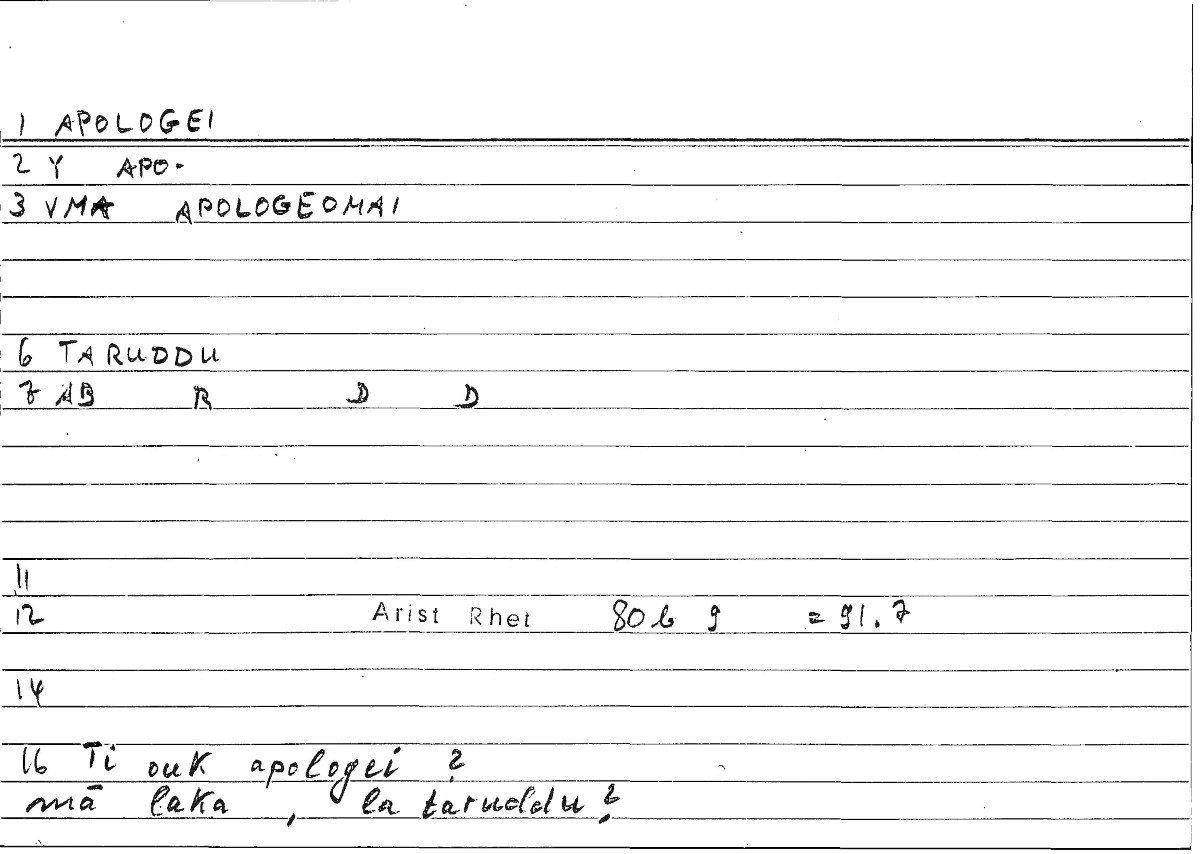 1 APOLOGEI
2 Y APO-
3 VMA APOLOGEOMAI
6 TARUDDU
7 AB R D D
11
12 Arist Rhet 80b 9 = 91.7
14
16 Ti ouk apologei ?
mā laka , la taruddu ?